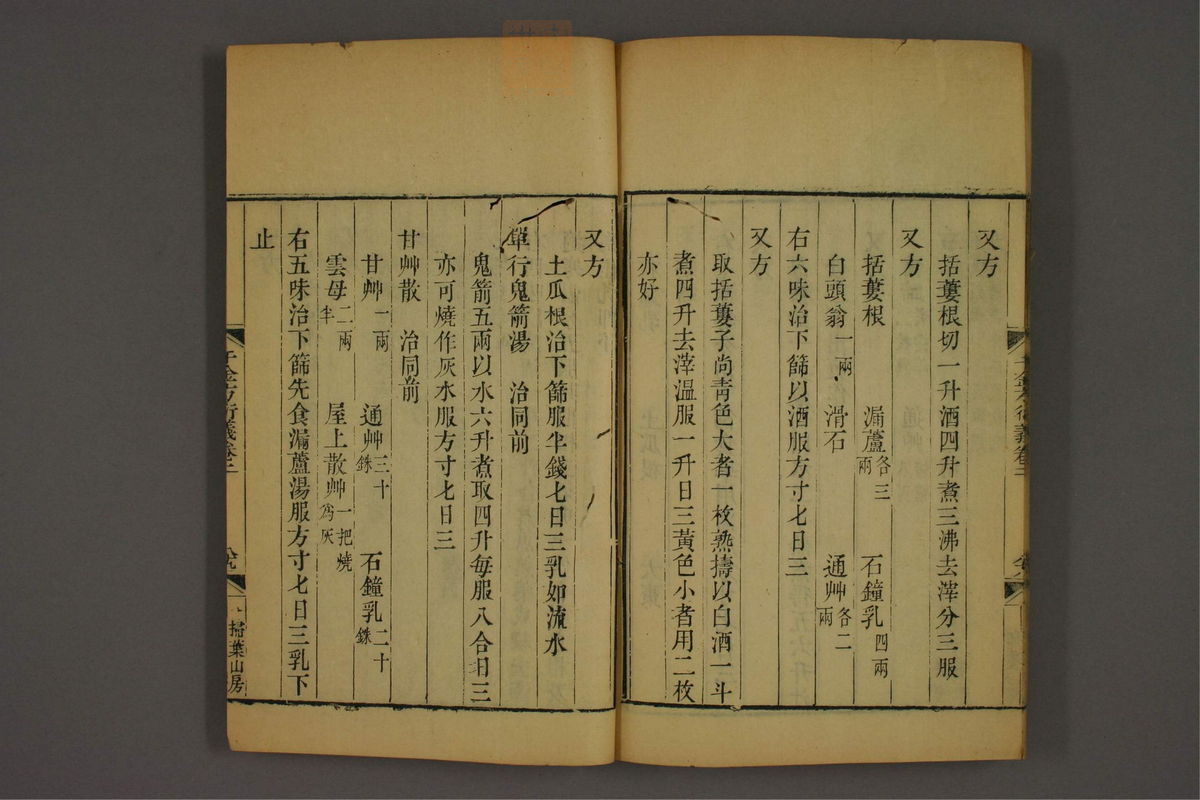 又方
括蔞根切一升酒四升煮三沸去滓分三服
又方
括蔞根 漏蘆各三兩 石鐘乳四兩
白頭翁一兩 滑石 通艸各二兩
右六味治下篩以酒服方寸七日三
又方
取括蔞子尚靑色大者一枚熟擣以白酒一斗
煮四升去滓温服一升日三黃色小者用二枚
亦好
又方
土瓜根治下篩服半錢七日三乳如流水
單行鬼箭湯 治同前
鬼箭五兩以水六升煮取四升每服八合日三
亦可燒作灰水服方寸七日三
甘艸散 治同前
甘艸一兩 通艸三十銖 石鐘乳二十銖
雲母二兩半 屋上散艸一把燒爲灰
右五味治下篩先食漏蘆湯服方寸七日三乳下
止
千金方衍義卷二
掃葉山房